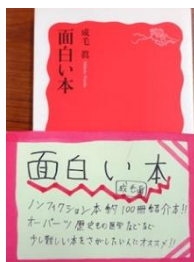 成毛 眞
面白い本
面白い本
成毛眞
ノンフィクション本 約100冊紹介本!!
オーパーツ 歴史もの 医学 などなど
少し難しい本をさがしたい人にオススメ!!